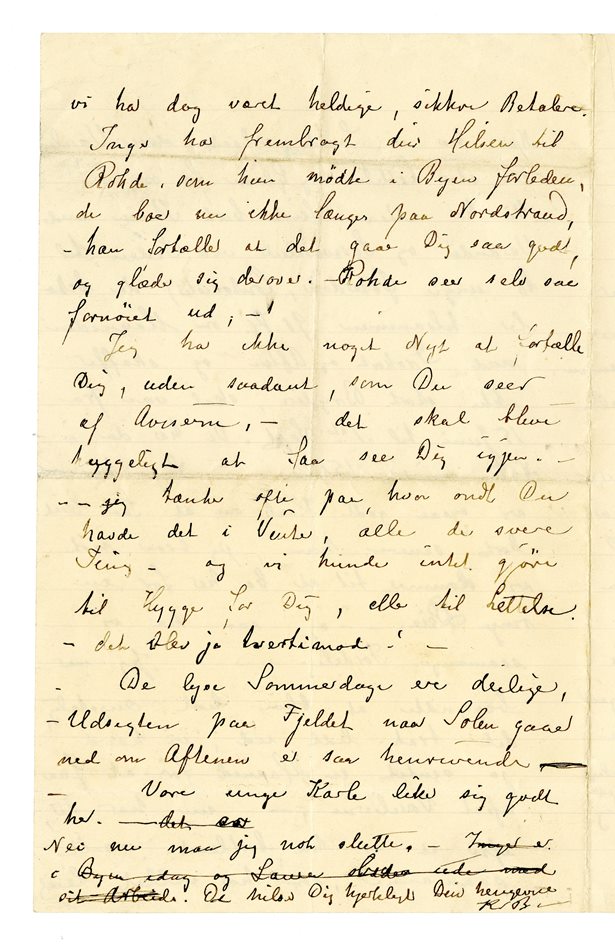 vi ha dog været heldige, sikkre Betalere.
Inger ha frembragt din Hilsen til
Rohde, som hun mødte i Byen forleden,
de boe nu ikke længer paa Nordstrand,
- han fortæller at det gaar Dig saa godt,
og glæder sig derover. - Rohde seer selv saa
fornöiet ud, -!
Jeg ha ikke noget Nyt at fortælle
Dig, uden saadant, som Du seer
af Aviserne, - det skal blive
hyggeligt at faa see Dig igjen. -
- - jeg tænker ofte paa, hvor ondt Du
havde det i Vinter, alle de svere
Ting - og vi kunde intet gjöre
til Hygge for Dig, eller til Lettelse.
- det blev jo tvertimod! -
- De lyse Sommerdage ere deilige,
- Udsigten paa Fjeldet naar Solen gaaer
ned om Aftenen er saa henrivende -
- Vore unge Karle like sig godt
her. - det
Nei nu maa jeg nok slutte. - Inger er
i Byen idag og ude med
sit Arbeide. De hilse Dig hjerteligt Din hengivne